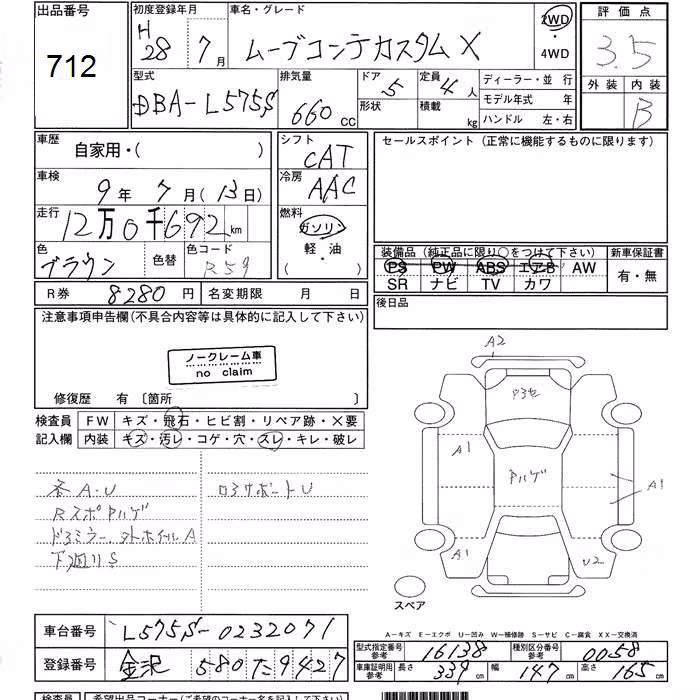 出品番号 初度登録年月 車名・グレード 評価点
712 H28 7月 ムーブコンテカスタム X 2WD 4WD 3.5
型式 排気量 ドア 5 定員 4人 ディーラー・並 行 外装 内装
DBA-L575S 660cc 形状 積載 kg モデル年式 年 B
ハンドル 左・右
車歴 自家用・( ) シフト CAT セールスポイント (正常に機能するものに限ります)
車検 9年 7月(13日) 冷房 AAC
走行 12万0千692km 燃料 ガソリン
軽・油
( )
色 ブラウン 色替 色コード R59
装備品 (純正品に限り○をつけて下さい) 新車保証書
PS PW ABS エアB AW 有・無
SR ナビ TV カワ
R券 8280円 名変期限 月 日 後日品
注意事項申告欄(不具合内容等は具体的に記入して下さい)
ノークレーム車
no claim
修復歴 有 〔箇所 〕
検査員 FW キズ・飛石・ヒビ割・リペア跡・X要
記入欄 内装 キズ・汚レ・コゲ・穴・スレ・キレ・破レ
各A・U
RスポPハゲ
ドアミラー、外ホイルA
下廻りS
ロアサポートU
A2
A1
Pハゲ
A1
A1
U2
スペア
A-キズ E-エクボ U-凹み W-補修跡 S-サビ C-腐食 XX-交換済
車台番号 L575S-0232071
登録番号 金沢 580 た 9427
型式指定番号 参考 16138 種別区分番号 参考 0058
車庫証明用 参考 長さ 339cm 幅 147cm 高さ 165cm
検査員 希望出品コーナー(ご希望のコーナー名を記入して下さい)